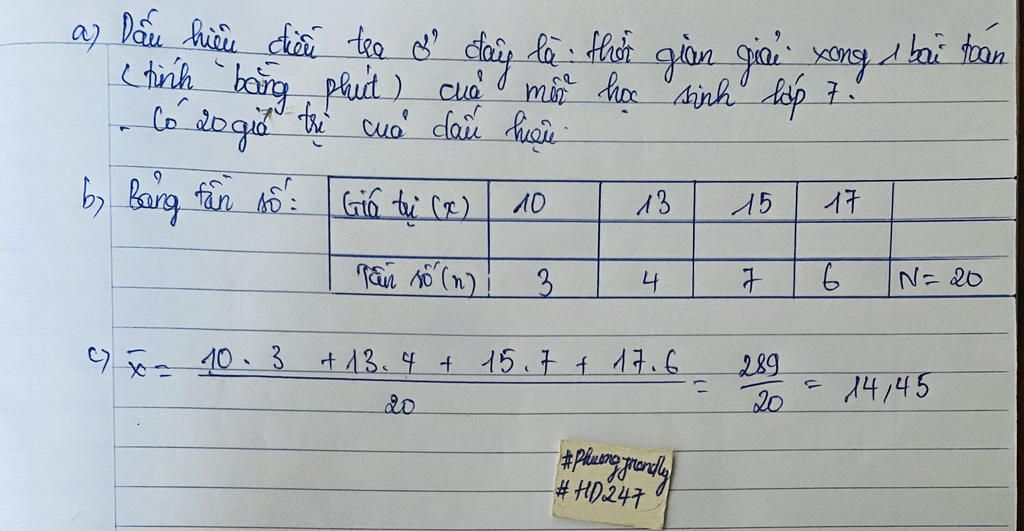 a) Dấu hiệu điều tra ở đây là: thời gian giải xong 1 bài toán
(tính bằng phút) của mỗi học sinh lớp 7.
- Có 20 giá trị của dấu hiệu.
b) Bảng tần số: Giá trị (x) 10 13 15 17
Tần số (n) 3 4 7 6 N = 20
c) x̄ = (10 . 3 + 13 . 4 + 15 . 7 + 17 . 6) / 20 = 289 / 20 = 14,45
#Phuongtrandly
#HD247